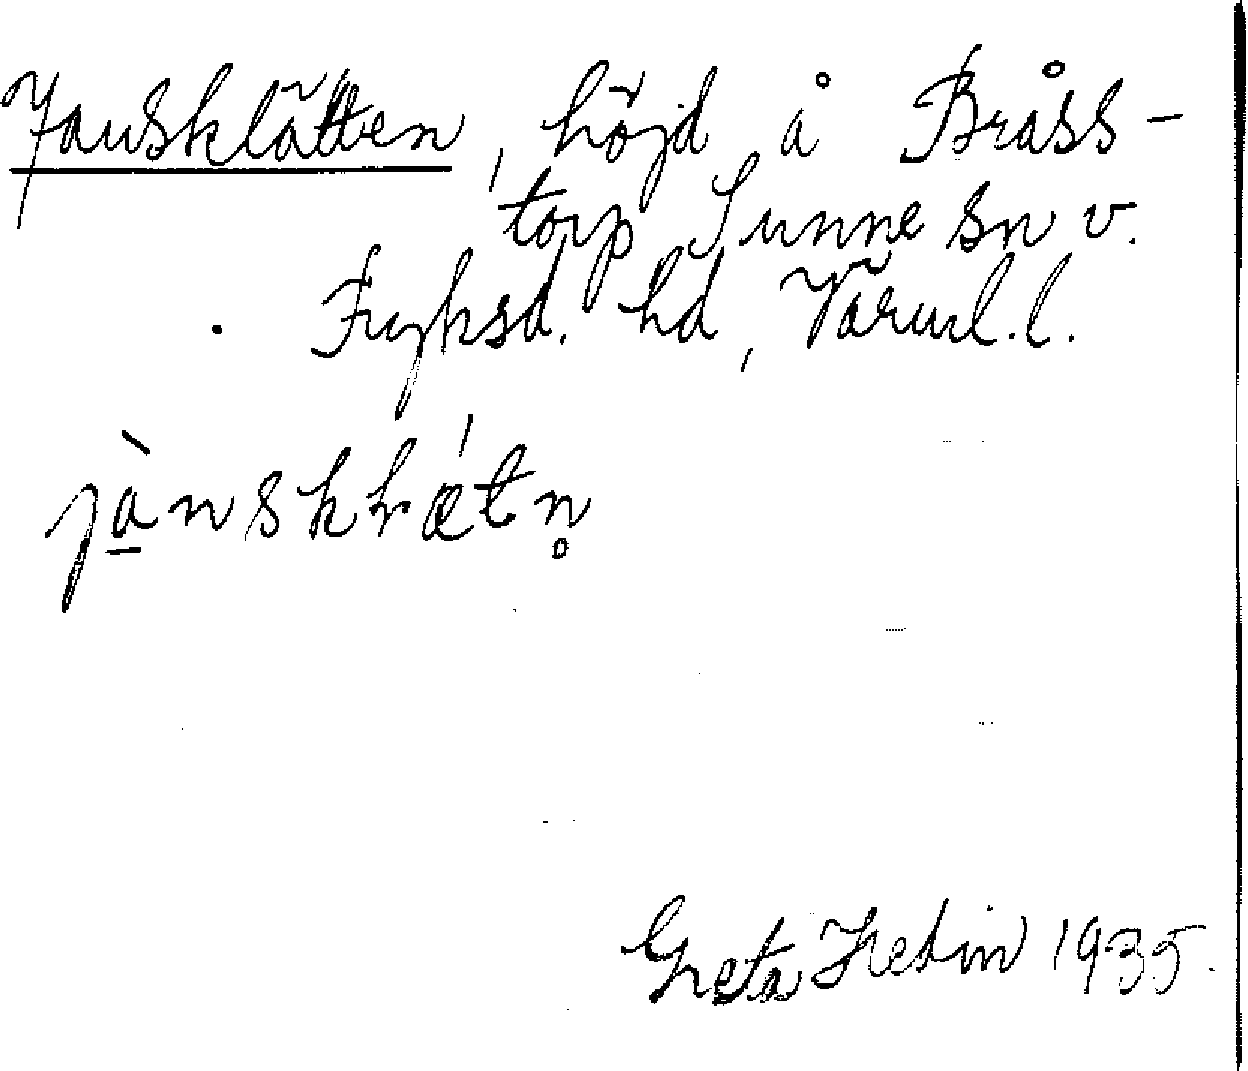 Jansklätten, höjd å Bråss-
torp Sunne sn v.
Fryksd. hd, Värml. l.
jà̱nskḷǽtn̥
Greta Hedin 1935.